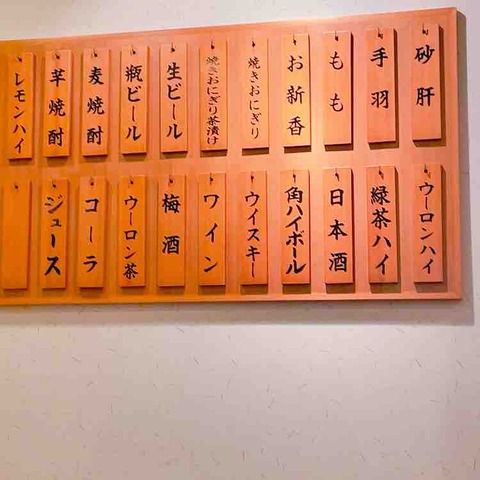 砂肝
手羽
もも
お新香
焼きおにぎり
焼きおにぎり茶漬け
生ビール
瓶ビール
麦焼酎
芋焼酎
レモンハイ
ウーロンハイ
緑茶ハイ
日本酒
角ハイボール
ウイスキー
ワイン
梅酒
ウーロン茶
コーラ
ジュース